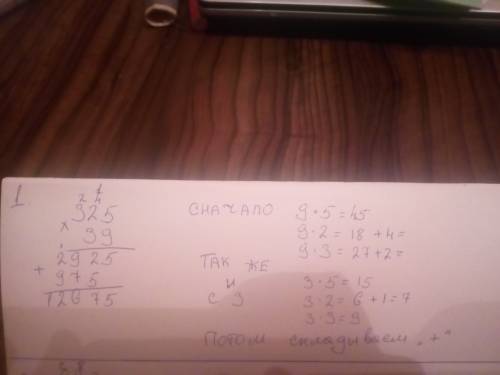 1.
2 4 1
× 325
39
2925
+ 975
12675
СНАЧАЛО
9·5=45
9·2=18+4=
9·3=27+2=
ТАК ЖЕ
И
С 3
3·5=15
3·2=6+1=7
3·3=9
ПОТОМ складываем „+"